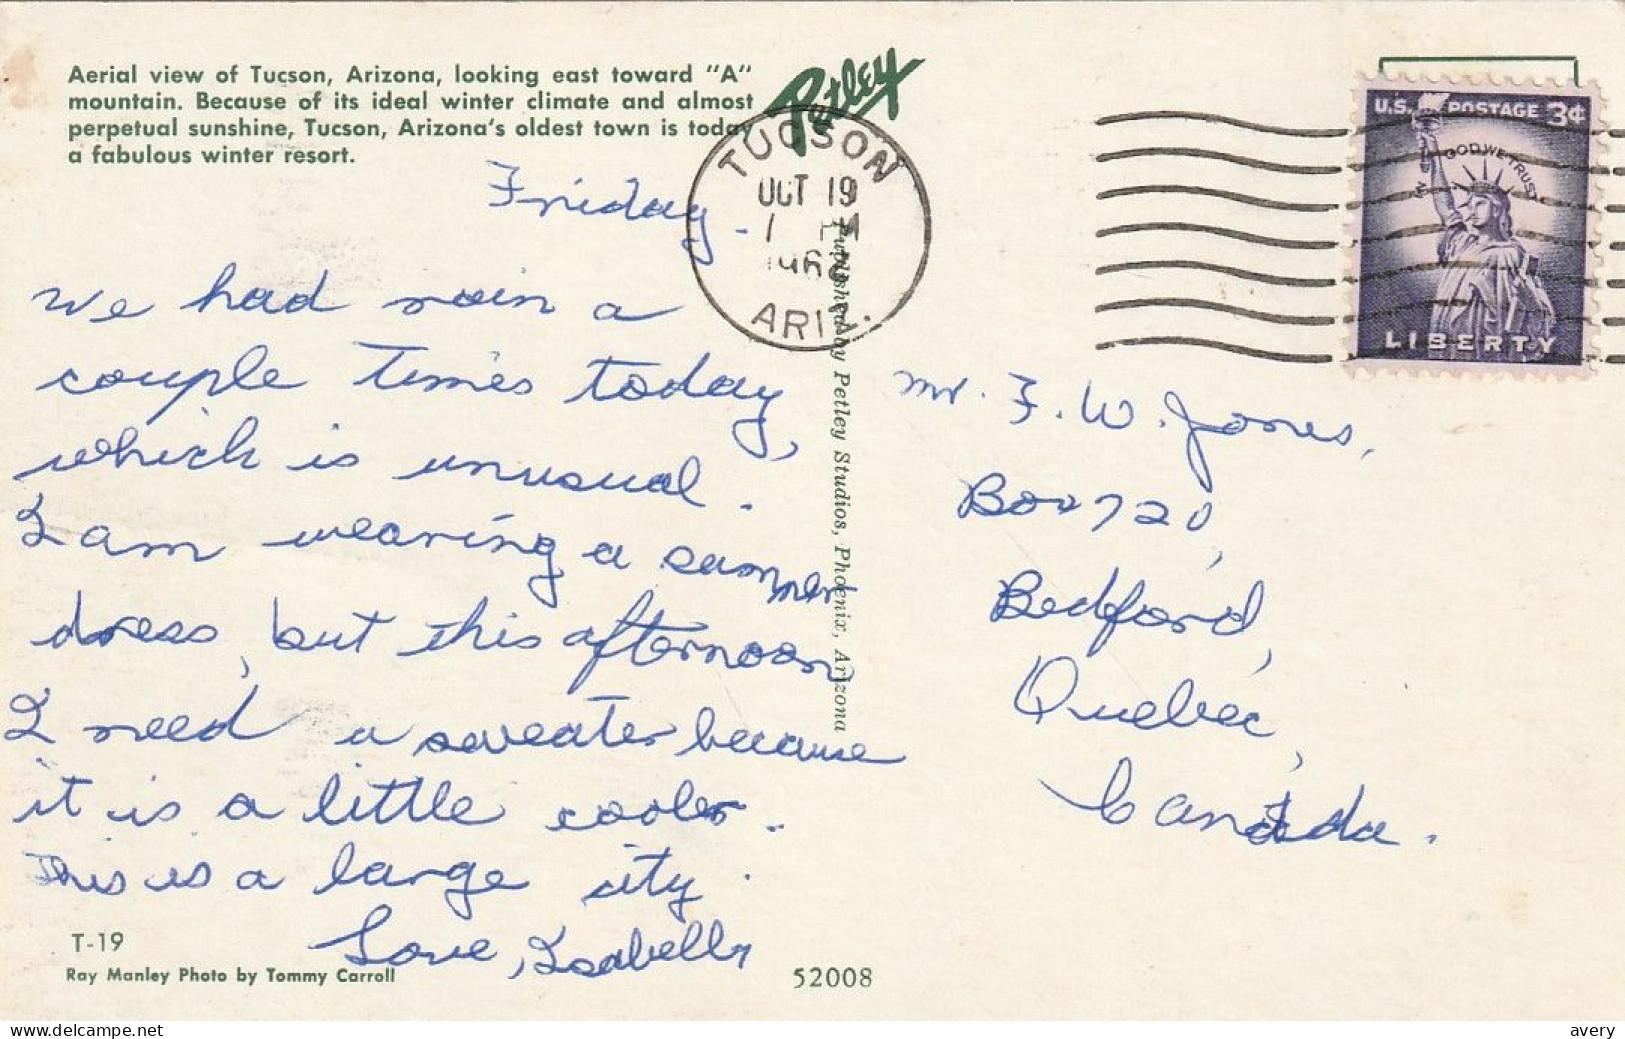 Aerial view of Tucson, Arizona, looking east toward "A"
mountain. Because of its ideal winter climate and almost
perpetual sunshine, Tucson, Arizona's oldest town is today
a fabulous winter resort.
Petley
TUCSON
OCT 19
1 PM
ARIZ.
U.S. POSTAGE 3¢
IN GOD WE TRUST
LIBERTY
Friday.
We had rain a
couple times today,
which is unusual.
I am wearing a summer
dress, but this afternoon
I need a sweater because
it is a little cooler.
This is a large city.
Love, Isabelle
Published by Petley Studios, Phoenix, Arizona
Mr. F. W. Jones,
Box 720,
Bedford,
Quebec,
Canada.
T-19
Ray Manley Photo by Tommy Carroll
52008
www.delcampe.net
avery